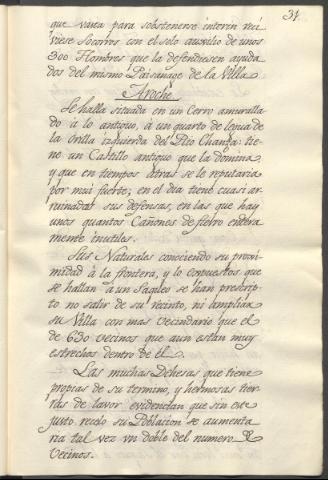 34
que vasta para sobstenerse interin reci
viese Socorros con el solo auxilio de unos
300 Hombres que la defendiesen ayuda
dos del mismo Paisanage de la Villa.
Aroche
Se halla situada en un Cerro amuralla
do à lo antiguo, à un quarto de legua de
la Orilla izquierda del Rio Chanza: tie
ne un Castillo antiguo que la domina
y que en tiempos atras se le reputaria
por mui fuerte; en el dia tiene cuasi ar
ruinadas sus defensas, en las que hay
unos quantos Cañones de fierro entera
mente inutiles.
Sus Naturales conociendo su proxi
midad à la frontera, y lo expuestos que
se hallan à un Saqueo se han prescrip
to no salir de su recinto, ni ampliar
su Villa con mas vecindario que el
de 630 vecinos que aun estan muy
estrechos dentro de èl.
Las muchas Dehesas que tiene
propias de su termino, y hermosas tier
ras de lavor evidencian que sin este
justo recelo su Poblacion se aumenta
ria tal vez un doble del numero de
Vecinos.